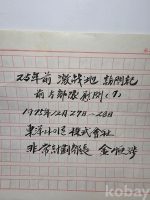 25年前 激戰地 訪問記
前 5部隊 慰問 (1)
1975年12月27日-28日
東洋나이론 株式會社
非常計劃部長 金
kobay